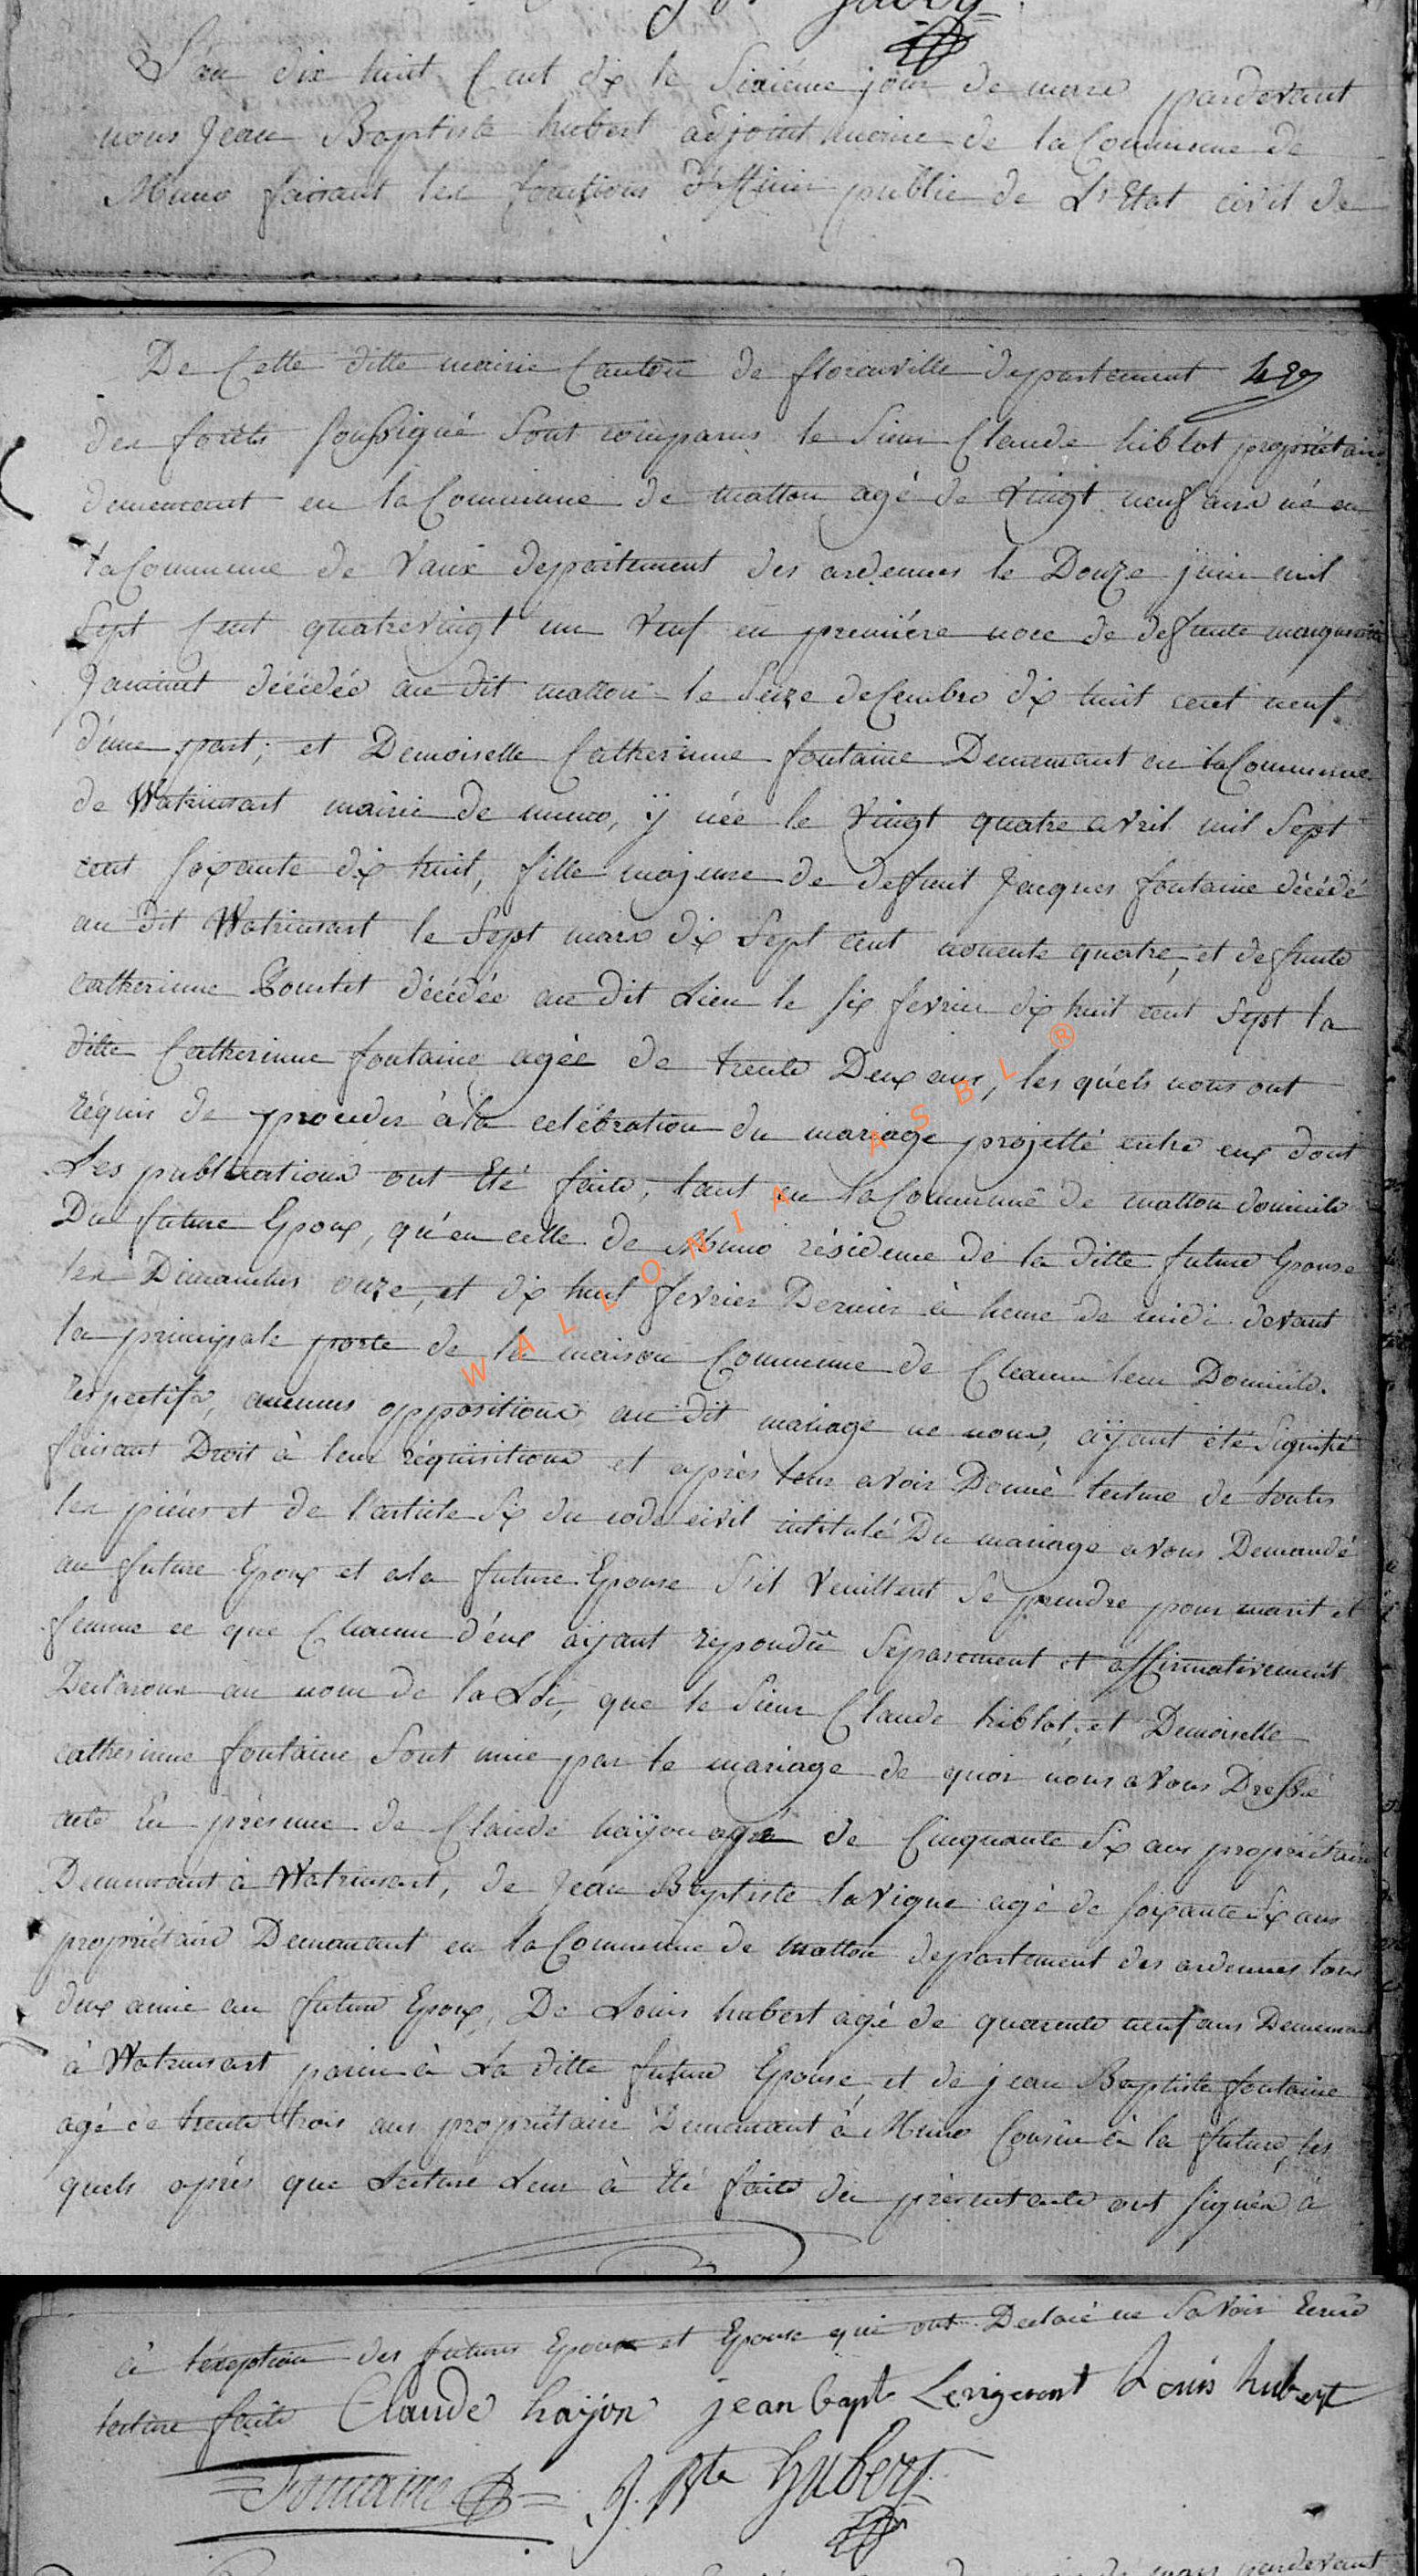 L'an dix huit Cent dix le Sixiéme jour de mars pardevant
nous Jean Baptiste hubert adjoint maire de la Commune de
Muno faisant les fonctions d'officier public de L'Etat civil de
De Cette ditte mairie Canton de florenville departement
des forêts soussigné Sont comparus le Sieur Claude hiblot propriétaire
demeurant en la Commune de matton agé de vingt neuf ans né en
la Commune de Vaux departement des ardennes le Douze juin mil
Sept Cent quatrevingt un veuf en premiére noce de defunte marguerite
Jaminet décédée au dit matton le Seize decembre dix huit cent neuf
d'une part; et Demoiselle Catherinne fontaine Demeurant en la Commune
de Watrinsart mairie de muno, ÿ née le vingt quatre avril mil Sept
cent soixante dix huit, fille majeure de defunt Jacques fontaine décédé
au dit Watrinsart le Sept mars dix Sept cent nonente quatre, et defunte
catherinne décédée au dit Lieu le six fevrier dix huit cent Sept la
ditte Catherinne fontaine agée de trente Deux ans, les quels nous ont
réquis de proceder à la celébration du mariage projetté entre eux dont
Les publications ont Eté faite, tant en la Commune de matton domicile
Du future Epoux, qu'en celle de Muno résidence de la ditte future Epouse
les Dimanches onze, et dix huit fevrier Dernier à heure de midi devant
la principale porte de la maison Commune de Chacun leur Domicile
respectifs, aucunes oppositions au dit mariage ne nous, aÿant été Signifié
faisant Droit à leur réquisitions et aprés leur avoir Donné lecture de toutes
les piéces et de l'article Six du code civil intitulé Du mariage avons Demandé
au future Epoux et ala future Epouse S'il veuillent Se prendre pour marit et
femme ce que Chacun d'eux aÿant repondu Separement et affirmativement
Declarons au nom de la Loi, que le Sieur Claude hiblot, et Demoiselle
catherinne fontaine Sont unie par le mariage de quoi nous avons Dressé
acte En présence de Claude haÿon agé de Cinquante Six ans propriétaire
Demeurant à Watrinsart, de Jean Baptiste lavigne agé de soixante Six ans
propriétaire Demeurant en la Commune de matton departement des ardennes tous
deux amie au future Epoux, De Louis hubert agé de quarente neuf ans Demeurant
à Watrinsart à La ditte future Epouse, et de jean Baptiste fontaine
agé de trente trois ans propriétaire Demeurant à Muno Cousin à la future, les
quels aprés que Lecture Leur à Eté faite du présent acte ont signés à
à l'exeption des futures Epoux et Epouse qui ont Declaré ne Savoir Ecrire
lecture faite Claude haÿon jean bapte Louis hubert
Fontaine J. Bte hubert